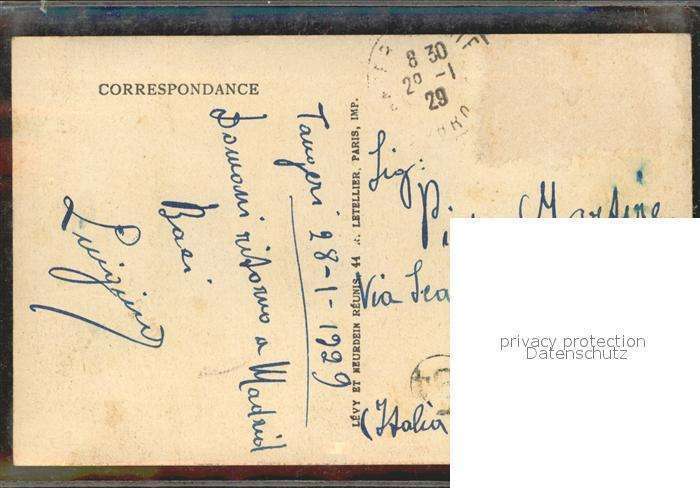 CORRESPONDANCE
Tangeri 28-1-1929
Domani ritorno a Madrid
Baci
Luigino
LÉVY ET NEURDEIN RÉUNIS, 44 LETELLIER, PARIS, IMP.
8 30
29 -1
29
Sig:
Via
(Italia
privacy protection
Datenschutz